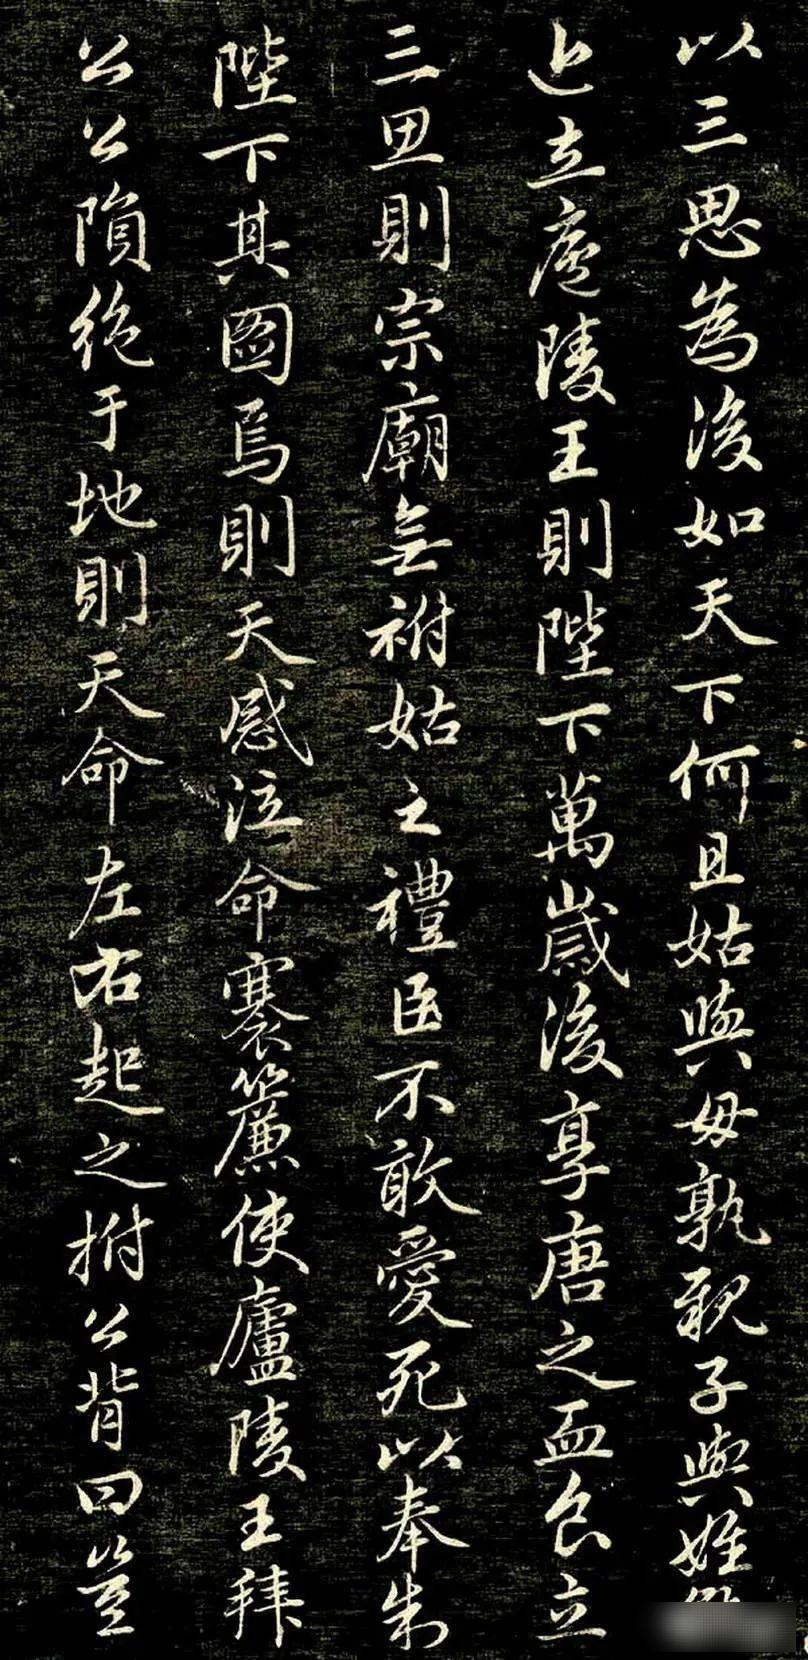 以三思為後如天下何且姑與母孰親子與姪
近立廬陵王則陛下萬歲後享唐之血食立
三思則宗廟無祔姑之禮臣不敢愛死以奉制
陛下其圖焉則天感泣命褰簾使廬陵王拜
公公隕絕于地則天命左右起之拊公背曰豈